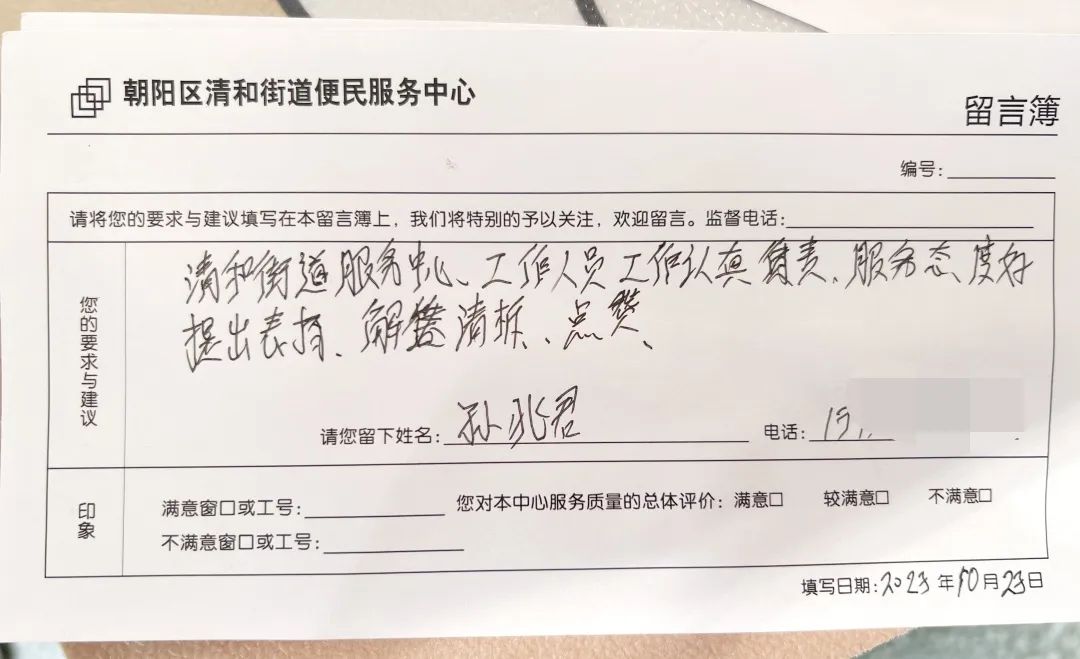 朝阳区清和街道便民服务中心
留言簿
编号:
请将您的要求与建议填写在本留言簿上，我们将特别的予以关注，欢迎留言。监督电话:
您的要求与建议
清和街道服务中心、工作人员工作认真负责、服务态度好
提出表扬、解答清晰、点赞、
请您留下姓名: 孙兆君 电话: 15
印象
满意窗口或工号: 您对本中心服务质量的总体评价: 满意□ 较满意□ 不满意□
不满意窗口或工号:
填写日期: 2023年10月23日